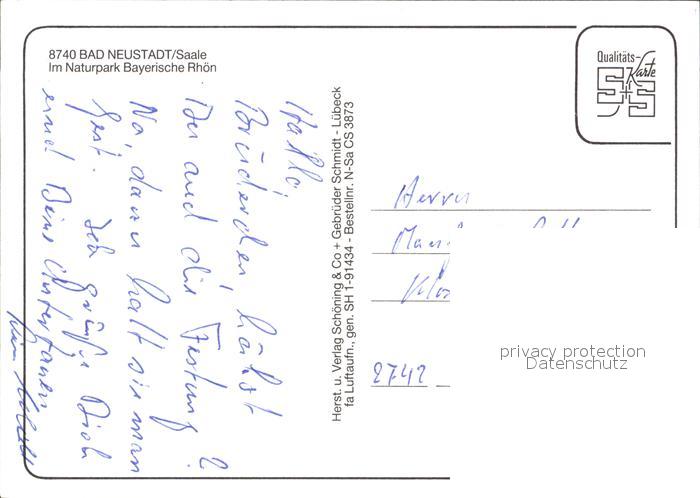 8740 BAD NEUSTADT/Saale
Im Naturpark Bayerische Rhön
Hallo,
Brüderchen, hältst
Du auch die Festung?
Na, dann halt sie man
fest. Ich grüße Dich
und Deine Untertanen
Herst. u. Verlag Schöning & Co + Gebrüder Schmidt - Lübeck
fa Luftaufn., gen. SH 1-91434 - Bestellnr. N-Sa CS 3873
Qualitäts-
Karte
S+S
Herrn
2742
privacy protection
Datenschutz